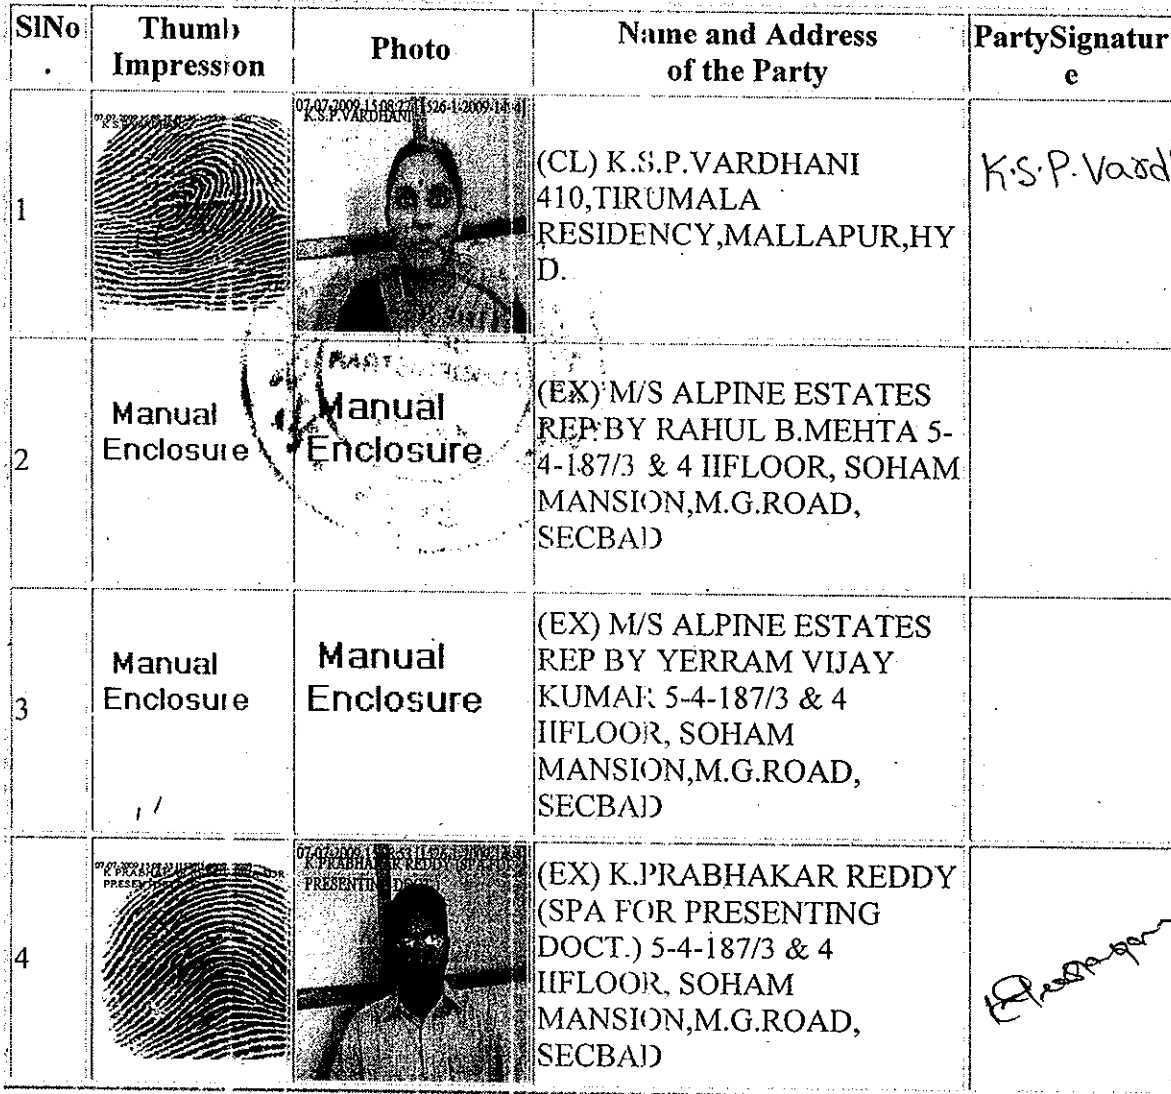 SlNo
.
Thumb
Impression
Photo
Name and Address
of the Party
PartySignatur
e
1
07-07-2009 15:08:27
K.S.P.VARDHANI
(CL) K.S.P.VARDHANI
410,TIRUMALA
RESIDENCY,MALLAPUR,HY
D.
K.S.P. Vard
2
Manual
Enclosure
Manual
Enclosure
(EX) M/S ALPINE ESTATES
REP BY RAHUL B.MEHTA 5-
4-187/3 & 4 IIFLOOR, SOHAM
MANSION,M.G.ROAD,
SECBAD
3
Manual
Enclosure
Manual
Enclosure
(EX) M/S ALPINE ESTATES
REP BY YERRAM VIJAY
KUMAR 5-4-187/3 & 4
IIFLOOR, SOHAM
MANSION,M.G.ROAD,
SECBAD
4
K.PRABHAKAR REDDY
PRESENTING
(EX) K.PRABHAKAR REDDY
(SPA FOR PRESENTING
DOCT.) 5-4-187/3 & 4
IIFLOOR, SOHAM
MANSION,M.G.ROAD,
SECBAD